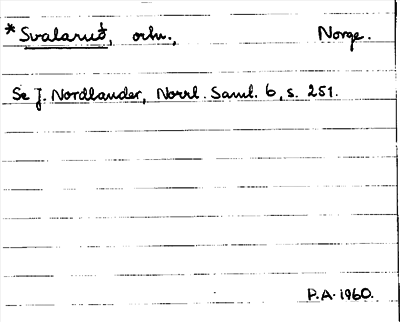 *Svalarud, ortn., Norge.
Se J. Nordlander, Norrl. Saml. 6, s. 251.
P.A. 1960.